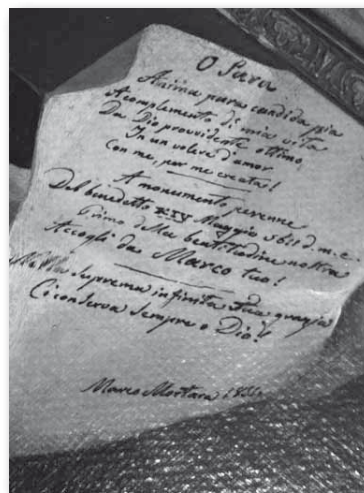 O Sara
Anima pura candida pia
A complemento di mia vita
Da Dio provvidente ottimo
In un volere d'amor
Con me, per me creata!
A monumento perenne
Del benedetto XXIV Maggio
Primo della beatitudine nostra
Accogli da Marco tuo!
Suprema infinita Tua grazia
Ci conserva sempre o Dio!
Marco Mortara